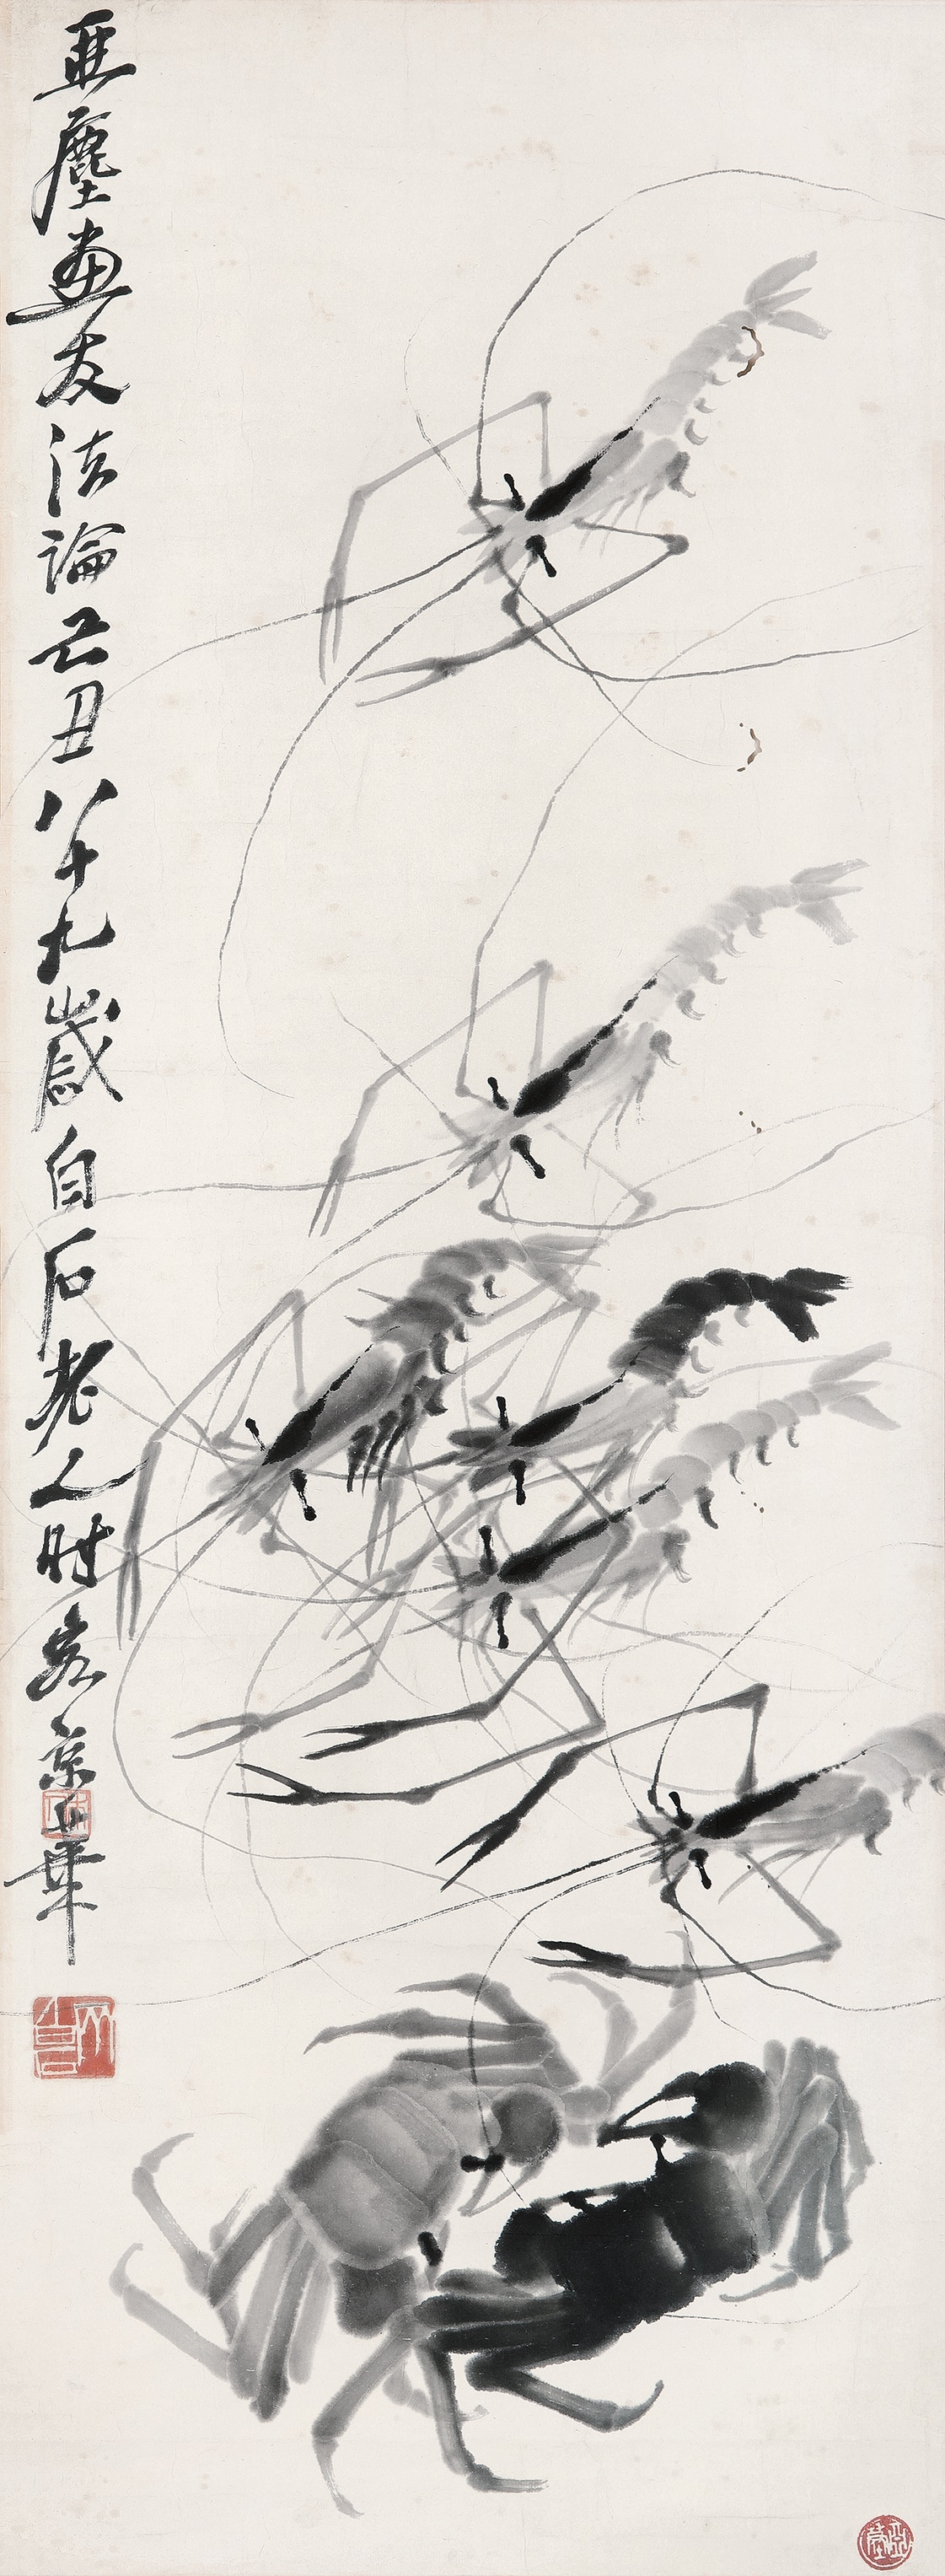 亞塵畫友法論己丑八十九歲白石老人時客京華